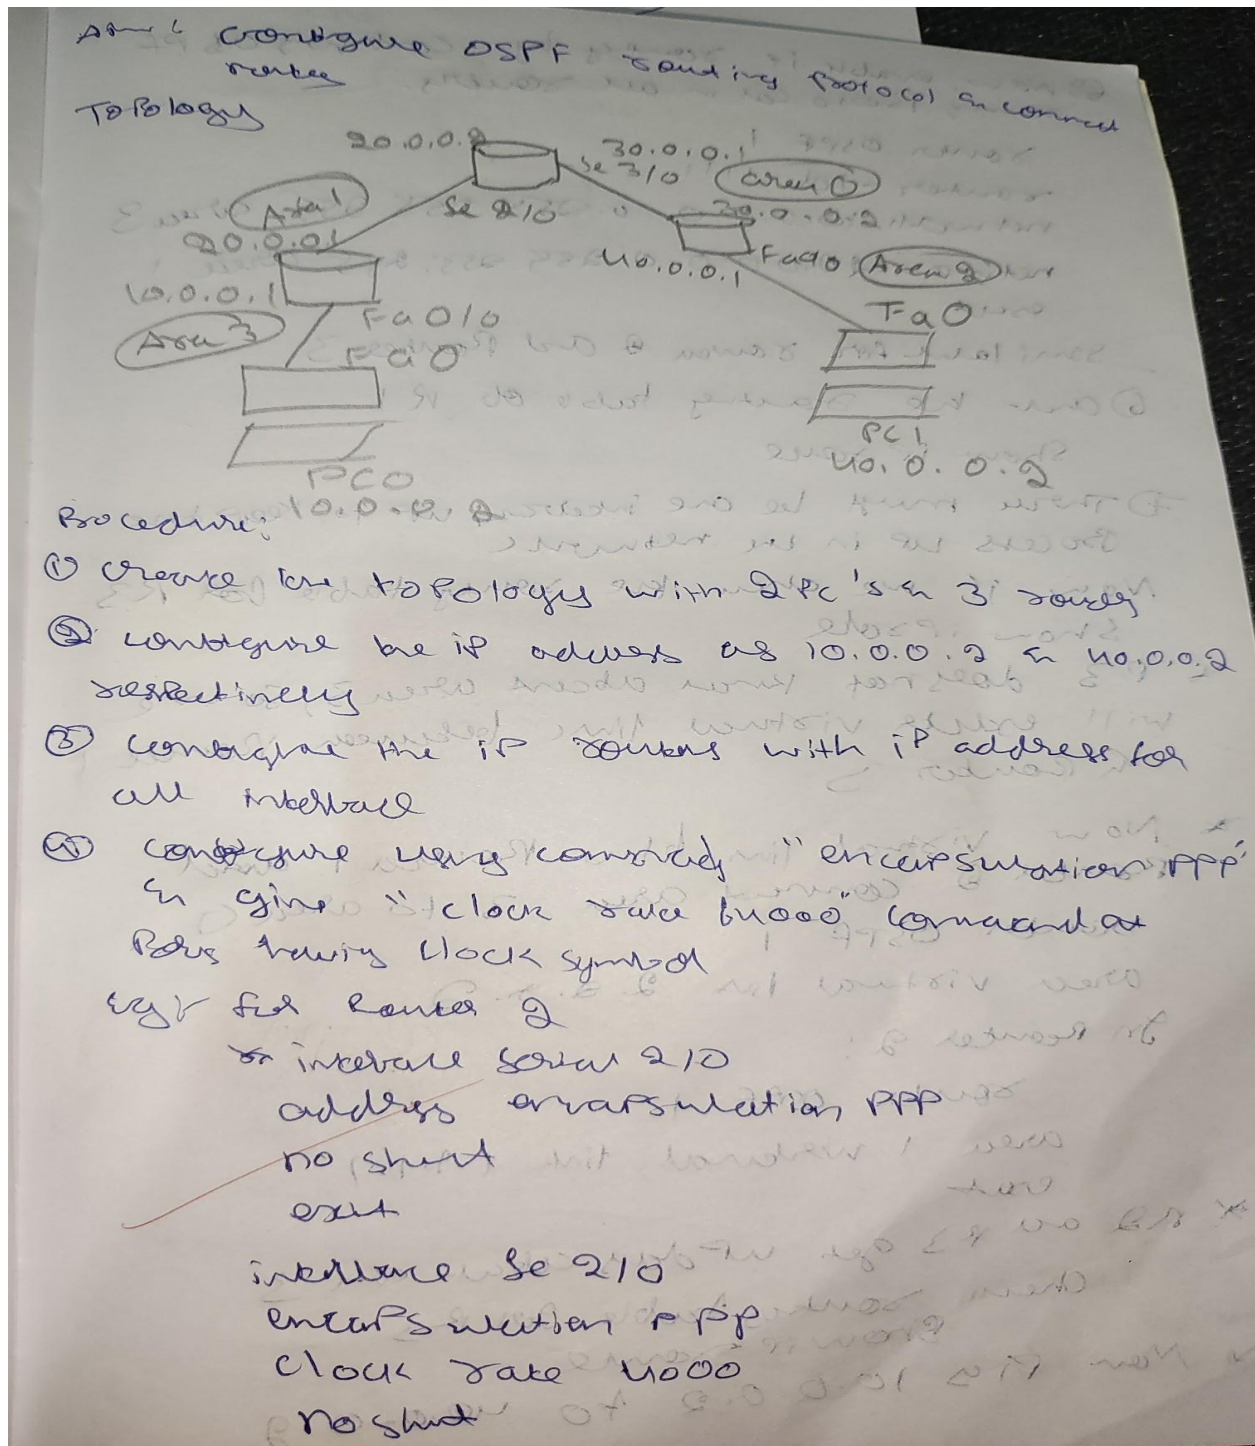 Aim: Configure OSPF routing Protocol & connect
Topology
20.0.0.2
30.0.0.1
Se 3/0
area 0
Area 1
Se 2/0
30.0.0.2
20.0.01
Fa0/0
Area 2
40.0.0.1
10.0.0.1
Fa0/0
Fa0
Area 3
Fa0
PC0
10.0.0.2
PC1
40.0.0.2
Procedure:
① Create the topology with 2 Pc's & 3 routers
② configure the ip address as 10.0.0.2 & 40.0.0.2
respectively
③ configure the ip routers with ip address for
all interface
④ configure using commands "encapsulation ppp"
& give "clock rate 64000" command at
Ports having clock symbol
Eg:- for Router 2
interface serial 2/0
address encapsulation PPP
no shut
exit
interface Se 2/0
encapsulation PPP
clock rate 4000
no shut